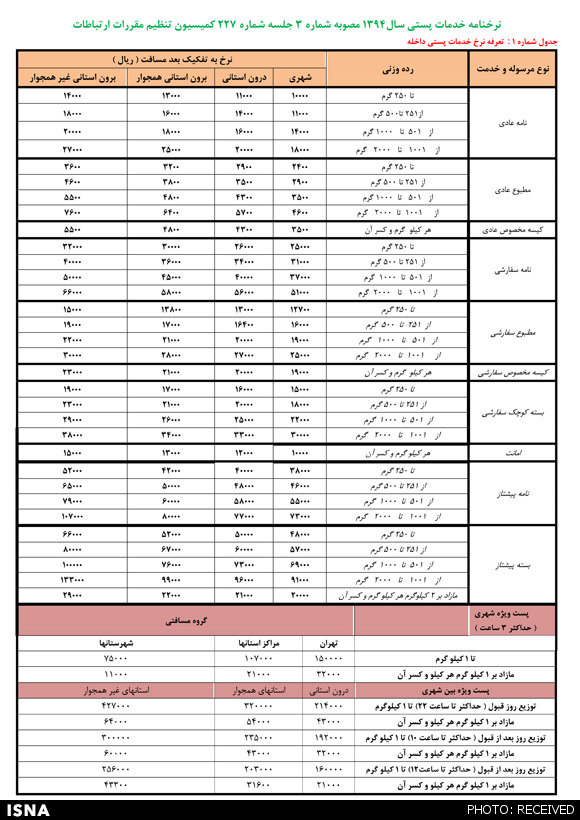 نرخنامه خدمات پستی سال۱۳۹۴ مصوبه شماره ۳ جلسه شماره ۲۲۷ کمیسیون تنظیم مقررات ارتباطات
جدول شماره ۱ : تعرفه نرخ خدمات پستی داخله
نوع مرسوله و خدمت رده وزنی نرخ به تفکیک بعد مسافت ( ریال )
شهری درون استانی برون استانی همجوار برون استانی غیر همجوار
نامه عادی
تا ۲۵۰ گرم ۱۰۰۰۰ ۱۱۰۰۰ ۱۳۰۰۰ ۱۴۰۰۰
از۲۵۱ تا۵۰۰ گرم ۱۱۰۰۰ ۱۴۰۰۰ ۱۶۰۰۰ ۱۸۰۰۰
از ۵۰۱ تا ۱۰۰۰ گرم ۱۴۰۰۰ ۱۶۰۰۰ ۱۸۰۰۰ ۲۰۰۰۰
از ۱۰۰۱ تا ۲۰۰۰ گرم ۱۸۰۰۰ ۲۰۰۰۰ ۲۵۰۰۰ ۲۷۰۰۰
مطبوع عادی
تا ۲۵۰ گرم ۲۴۰۰ ۲۹۰۰ ۳۲۰۰ ۳۶۰۰
از ۲۵۱ تا ۵۰۰ گرم ۲۹۰۰ ۳۵۰۰ ۳۸۰۰ ۴۶۰۰
از ۵۰۱ تا ۱۰۰۰ گرم ۳۵۰۰ ۴۳۰۰ ۴۸۰۰ ۵۵۰۰
از ۱۰۰۱ تا ۲۰۰۰ گرم ۴۶۰۰ ۵۷۰۰ ۶۴۰۰ ۷۶۰۰
کیسه مخصوص عادی هر کیلو گرم و کسر آن ۳۵۰۰ ۴۳۰۰ ۴۸۰۰ ۵۵۰۰
نامه سفارشی
تا ۲۵۰ گرم ۲۵۰۰۰ ۲۶۰۰۰ ۳۰۰۰۰ ۳۲۰۰۰
از ۲۵۱ تا ۵۰۰ گرم ۳۱۰۰۰ ۳۴۰۰۰ ۳۶۰۰۰ ۴۰۰۰۰
از ۵۰۱ تا ۱۰۰۰ گرم ۳۷۰۰۰ ۴۰۰۰۰ ۴۵۰۰۰ ۵۰۰۰۰
از ۱۰۰۱ تا ۲۰۰۰ گرم ۵۱۰۰۰ ۵۶۰۰۰ ۵۸۰۰۰ ۶۶۰۰۰
مطبوع سفارشی
تا ۲۵۰ گرم ۱۲۷۰۰ ۱۳۰۰۰ ۱۳۸۰۰ ۱۵۰۰۰
از ۲۵۱ تا ۵۰۰ گرم ۱۶۰۰۰ ۱۶۴۰۰ ۱۷۰۰۰ ۱۹۰۰۰
از ۵۰۱ تا ۱۰۰۰ گرم ۱۹۰۰۰ ۲۰۰۰۰ ۲۱۰۰۰ ۲۲۰۰۰
از ۱۰۰۱ تا ۲۰۰۰ گرم ۲۵۰۰۰ ۲۷۰۰۰ ۲۸۰۰۰ ۳۰۰۰۰
کیسه مخصوص سفارشی هر کیلو گرم و کسر آن ۱۹۰۰۰ ۲۰۰۰۰ ۲۱۰۰۰ ۲۳۰۰۰
بسته کوچک سفارشی
تا ۲۵۰ گرم ۱۵۰۰۰ ۱۶۰۰۰ ۱۷۰۰۰ ۱۹۰۰۰
از ۲۵۱ تا ۵۰۰ گرم ۱۸۰۰۰ ۲۰۰۰۰ ۲۱۰۰۰ ۲۳۰۰۰
از ۵۰۱ تا ۱۰۰۰ گرم ۲۲۰۰۰ ۲۵۰۰۰ ۲۶۰۰۰ ۲۹۰۰۰
از ۱۰۰۱ تا ۲۰۰۰ گرم ۳۰۰۰۰ ۳۳۰۰۰ ۳۴۰۰۰ ۳۸۰۰۰
امانت هر کیلو گرم و کسر آن ۱۰۰۰۰ ۱۲۰۰۰ ۱۳۰۰۰ ۱۵۰۰۰
نامه پیشتاز
تا ۲۵۰ گرم ۳۸۰۰۰ ۴۰۰۰۰ ۴۲۰۰۰ ۵۲۰۰۰
از ۲۵۱ تا ۵۰۰ گرم ۴۶۰۰۰ ۴۸۰۰۰ ۵۰۰۰۰ ۶۵۰۰۰
از ۵۰۱ تا ۱۰۰۰ گرم ۵۵۰۰۰ ۵۸۰۰۰ ۶۰۰۰۰ ۷۹۰۰۰
از ۱۰۰۱ تا ۲۰۰۰ گرم ۷۳۰۰۰ ۷۷۰۰۰ ۸۰۰۰۰ ۱۰۷۰۰۰
بسته پیشتاز
تا ۲۵۰ گرم ۴۸۰۰۰ ۵۰۰۰۰ ۵۲۰۰۰ ۶۶۰۰۰
از ۲۵۱ تا ۵۰۰ گرم ۵۷۰۰۰ ۶۰۰۰۰ ۶۷۰۰۰ ۸۰۰۰۰
از ۵۰۱ تا ۱۰۰۰ گرم ۶۹۰۰۰ ۷۳۰۰۰ ۷۶۰۰۰ ۱۰۰۰۰۰
از ۱۰۰۱ تا ۲۰۰۰ گرم ۹۱۰۰۰ ۹۶۰۰۰ ۹۹۰۰۰ ۱۳۳۰۰۰
مازاد بر ۲ کیلوگرم هر کیلو گرم و کسر آن ۲۰۰۰۰ ۲۱۰۰۰ ۲۲۰۰۰ ۲۹۰۰۰
پست ویژه شهری
( حداکثر ۳ ساعت )
گروه مسافتی
تهران مراکز استانها شهرستانها
تا ۱ کیلو گرم ۱۵۰۰۰۰ ۱۰۷۰۰۰ ۷۵۰۰۰
مازاد بر ۱ کیلو گرم هر کیلو و کسر آن ۳۲۰۰۰ ۲۱۰۰۰ ۱۱۰۰۰
پست ویژه بین شهری درون استانی استانهای همجوار استانهای غیر همجوار
توزیع روز قبول ( حداکثر تا ساعت ۲۲) تا ۱ کیلوگرم ۲۱۴۰۰۰ ۳۲۰۰۰۰ ۴۲۷۰۰۰
مازاد بر ۱ کیلو گرم هر کیلو و کسر آن ۴۳۰۰۰ ۵۴۰۰۰ ۶۴۰۰۰
توزیع روز بعد از قبول ( حداکثر تا ساعت ۱۰) تا ۱ کیلو گرم ۱۹۲۰۰۰ ۲۳۵۰۰۰ ۳۰۰۰۰۰
مازاد بر ۱ کیلو گرم هر کیلو و کسر آن ۳۲۰۰۰ ۴۳۰۰۰ ۶۰۰۰۰
توزیع روز بعد از قبول ( حداکثر تا ساعت۱۲) تا ۱ کیلو گرم ۱۶۰۰۰۰ ۲۰۳۰۰۰ ۲۵۶۰۰۰
مازاد بر ۱ کیلو گرم هر کیلو و کسر آن ۲۱۰۰۰ ۳۱۶۰۰ ۴۳۳۰۰
ISNA
PHOTO: RECEIVED